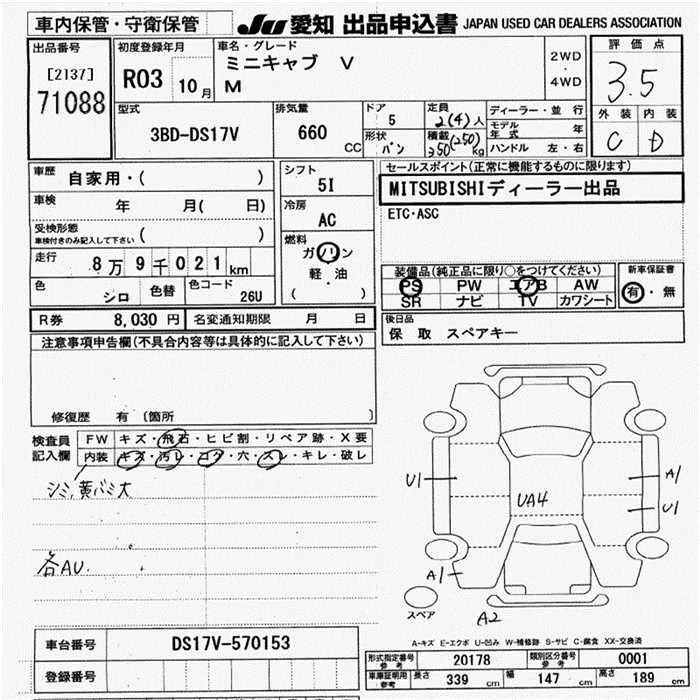 車内保管・守衛保管
JU 愛知 出品申込書 JAPAN USED CAR DEALERS ASSOCIATION
出品番号
[2137]
71088
初度登録年月
R03 10月
車名・グレード
ミニキャブ V
M
2WD
・
4WD
評価点
3.5
外装 内装
C D
型式
3BD-DS17V
排気量
660 CC
ドア
5
形状
バン
定員
2(4)人
積載
350(250)kg
ディーラー・並 行
モデル年式 年
ハンドル 左・右
車歴 自家用・( )
車検 年 月( 日)
受検形態
車検付きのみ記入して下さい ( )
走行 8万9千021km
色 シロ 色替 色コード 26U
シフト
5I
冷房
AC
燃料
ガソリン
軽・油
( )
セールスポイント(正常に機能するものに限ります)
MITSUBISHIディーラー出品
ETC・ASC
装備品(純正品に限り○をつけてください)
PS PW エアB AW
SR ナビ TV カワシート
新車保証書
有・無
R券 8,030円 名変通知期限 月 日
後日品
保 取 スペアキー
注意事項申告欄(不具合内容等は具体的に記入して下さい)
修復歴 有 〔箇所 〕
検査員記入欄
FW キズ・飛石・ヒビ割・リペア跡・X要
内装 キズ・汚レ・コゲ・穴・スレ・キレ・破レ
シミ,黄バミ大
各AU.
U1
A1
UA4
U1
A1
スペア
A2
A-キズ E-エクボ U-凹み W-補修跡 S-サビ C-腐食 XX-交換済
車台番号 DS17V-570153
登録番号
形式指定番号参考 20178 類別区分番号参考 0001
車庫証明用・参考 長さ 339cm 幅 147cm 高さ 189cm